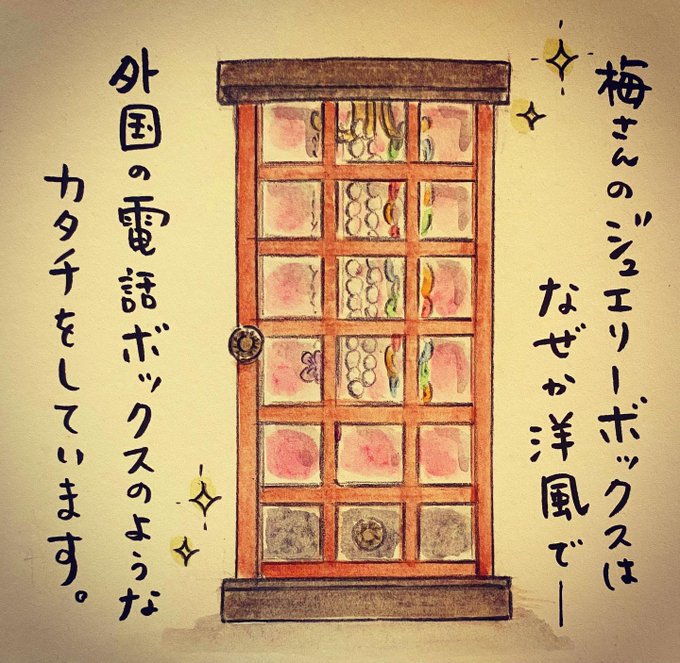 梅さんのジュエリーボックスは
なぜか洋風でー
外国の電話ボックスのような
カタチをしています。